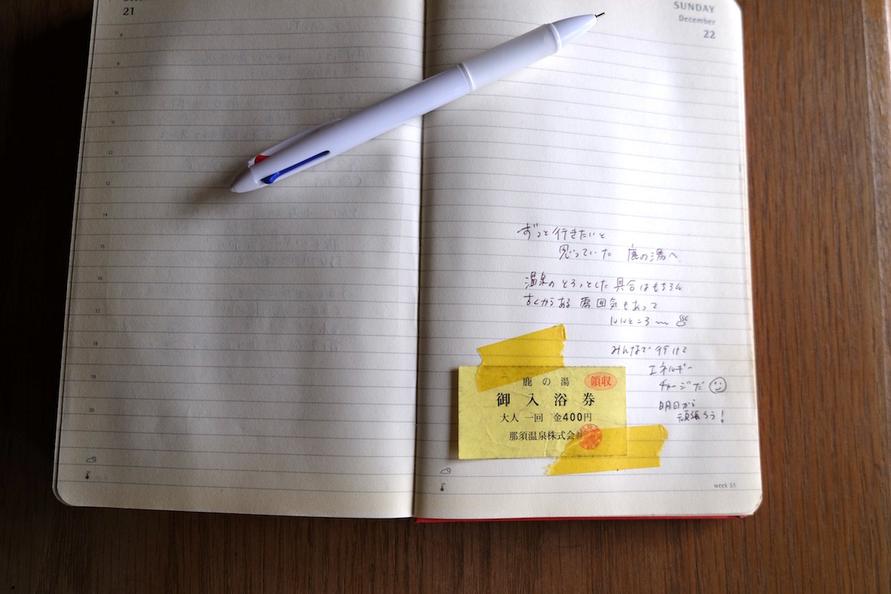 21
SUNDAY
December
22
ずっと行きたいと
思っていた 鹿の湯へ
温泉のとろっとした具合はもちろん
古くからある雰囲気もあって
いいところ〜
みんなで行けて
エネルギー
チャージだ
明日から
頑張ろう!
鹿の湯
領収
御入浴券
大人 一回 金400円
那須温泉株式会社
week 51